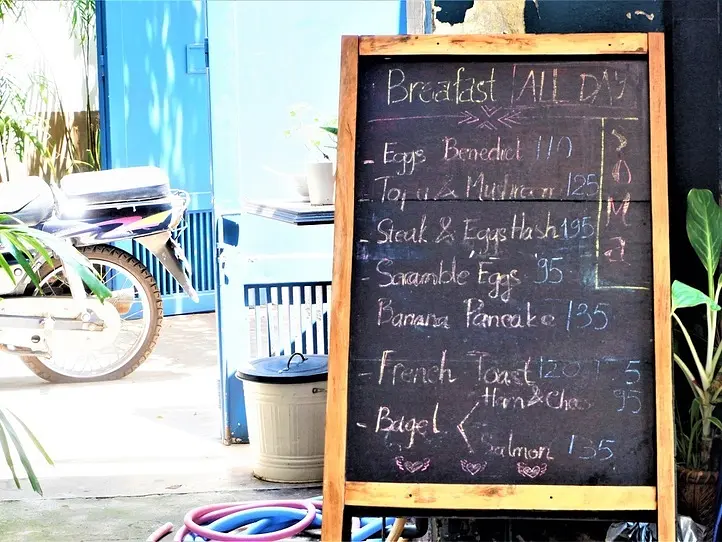 Breafast ALL DAY
- Eggs Benedict 110
- Tofu & Mushroom 125
- Steak & Eggs Hash 195
- Scramble Eggs 95
Banana Pancake 135
- French Toast 120
- Bagel < Ham & Chee 95
Salmon 135